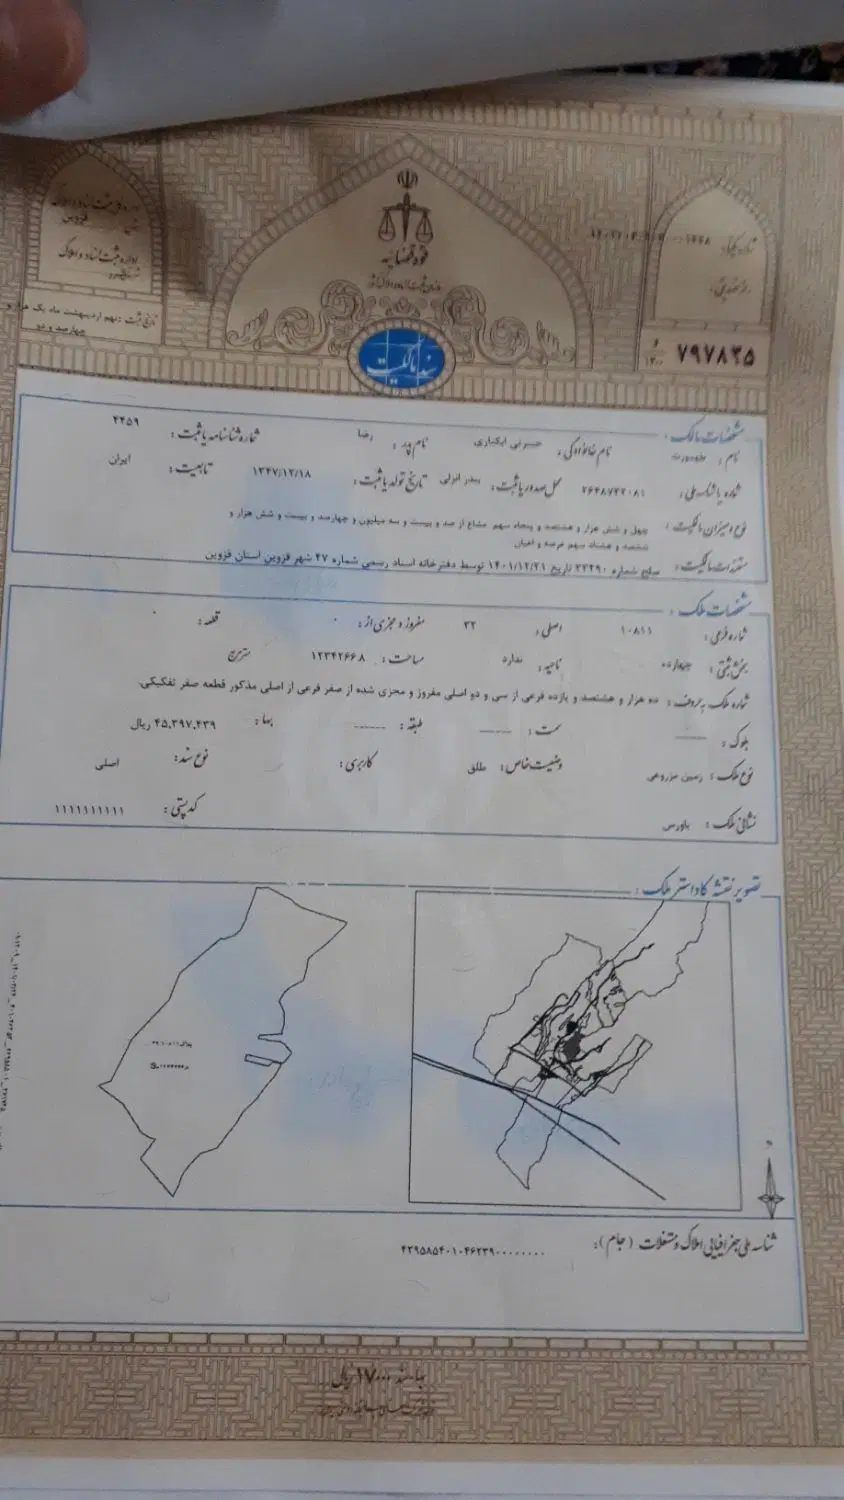 قوه قضائیه
سازمان ثبت اسناد و املاک کشور
اداره کل ثبت اسناد و املاک
قزوین
اداره ثبت اسناد و املاک
تاریخ ثبت : نهم اردیبهشت ماه یک هزار و
چهارصد و دو
سند مالکیت
۷۹۷۸۳۵
و
۱۴۰۰
مشخصات مالک :
نام : نام خانوادگی : نام پدر : رضا شماره شناسنامه یا ثبت : ۲۴۵۹
شماره یا شناسه ملی : محل صدور یا ثبت : بندر انزلی تاریخ تولد یا ثبت : ۱۳۴۷/۱۲/۱۸ تابعیت : ایران
نوع و میزان مالکیت : چهل و شش هزار و هشتصد و پنجاه سهم مشاع از صد و بیست و سه میلیون و چهارصد و بیست و شش هزار و
ششصد و هشتاد سهم عرصه و اعیان
مستندات مالکیت : صلح شماره ۲۲۲۹۰ تاریخ ۱۴۰۱/۱۲/۲۱ توسط دفترخانه اسناد رسمی شماره ۴۷ شهر قزوین استان قزوین
مشخصات ملک :
شماره فرعی : ۱۰۸۱۱ اصلی : ۳۲ مفروز و مجزی از : ۰ قطعه : ۰
بخش ثبتی : چهارده ناحیه : ندارد مساحت : ۱۲۳۴۲۶۶۸ مترمربع
شماره ملک به حروف : ده هزار و هشتصد و یازده فرعی از سی و دو اصلی مفروز و مجزی شده از صفر فرعی از اصلی مذکور قطعه صفر تفکیکی.
بلوک : ------ سمت : ------ طبقه : ------ بها : ۴۵,۳۹۷,۴۳۹ ریال
نوع ملک : زمین مزروعی وضعیت خاص : طلق کاربری : نوع سند : اصلی
نشانی ملک : باورس کد پستی : ۱۱۱۱۱۱۱۱۱۱
تصویر نقشه کاداستر ملک :
شناسه ملی جغرافیایی املاک و مستغلات (جام) : ۴۲۹۵۸۵۴۰۱۰۴۶۲۳۹۰۰۰۰۰۰۰۰
بها سند ۱۷۰۰۰ ریال